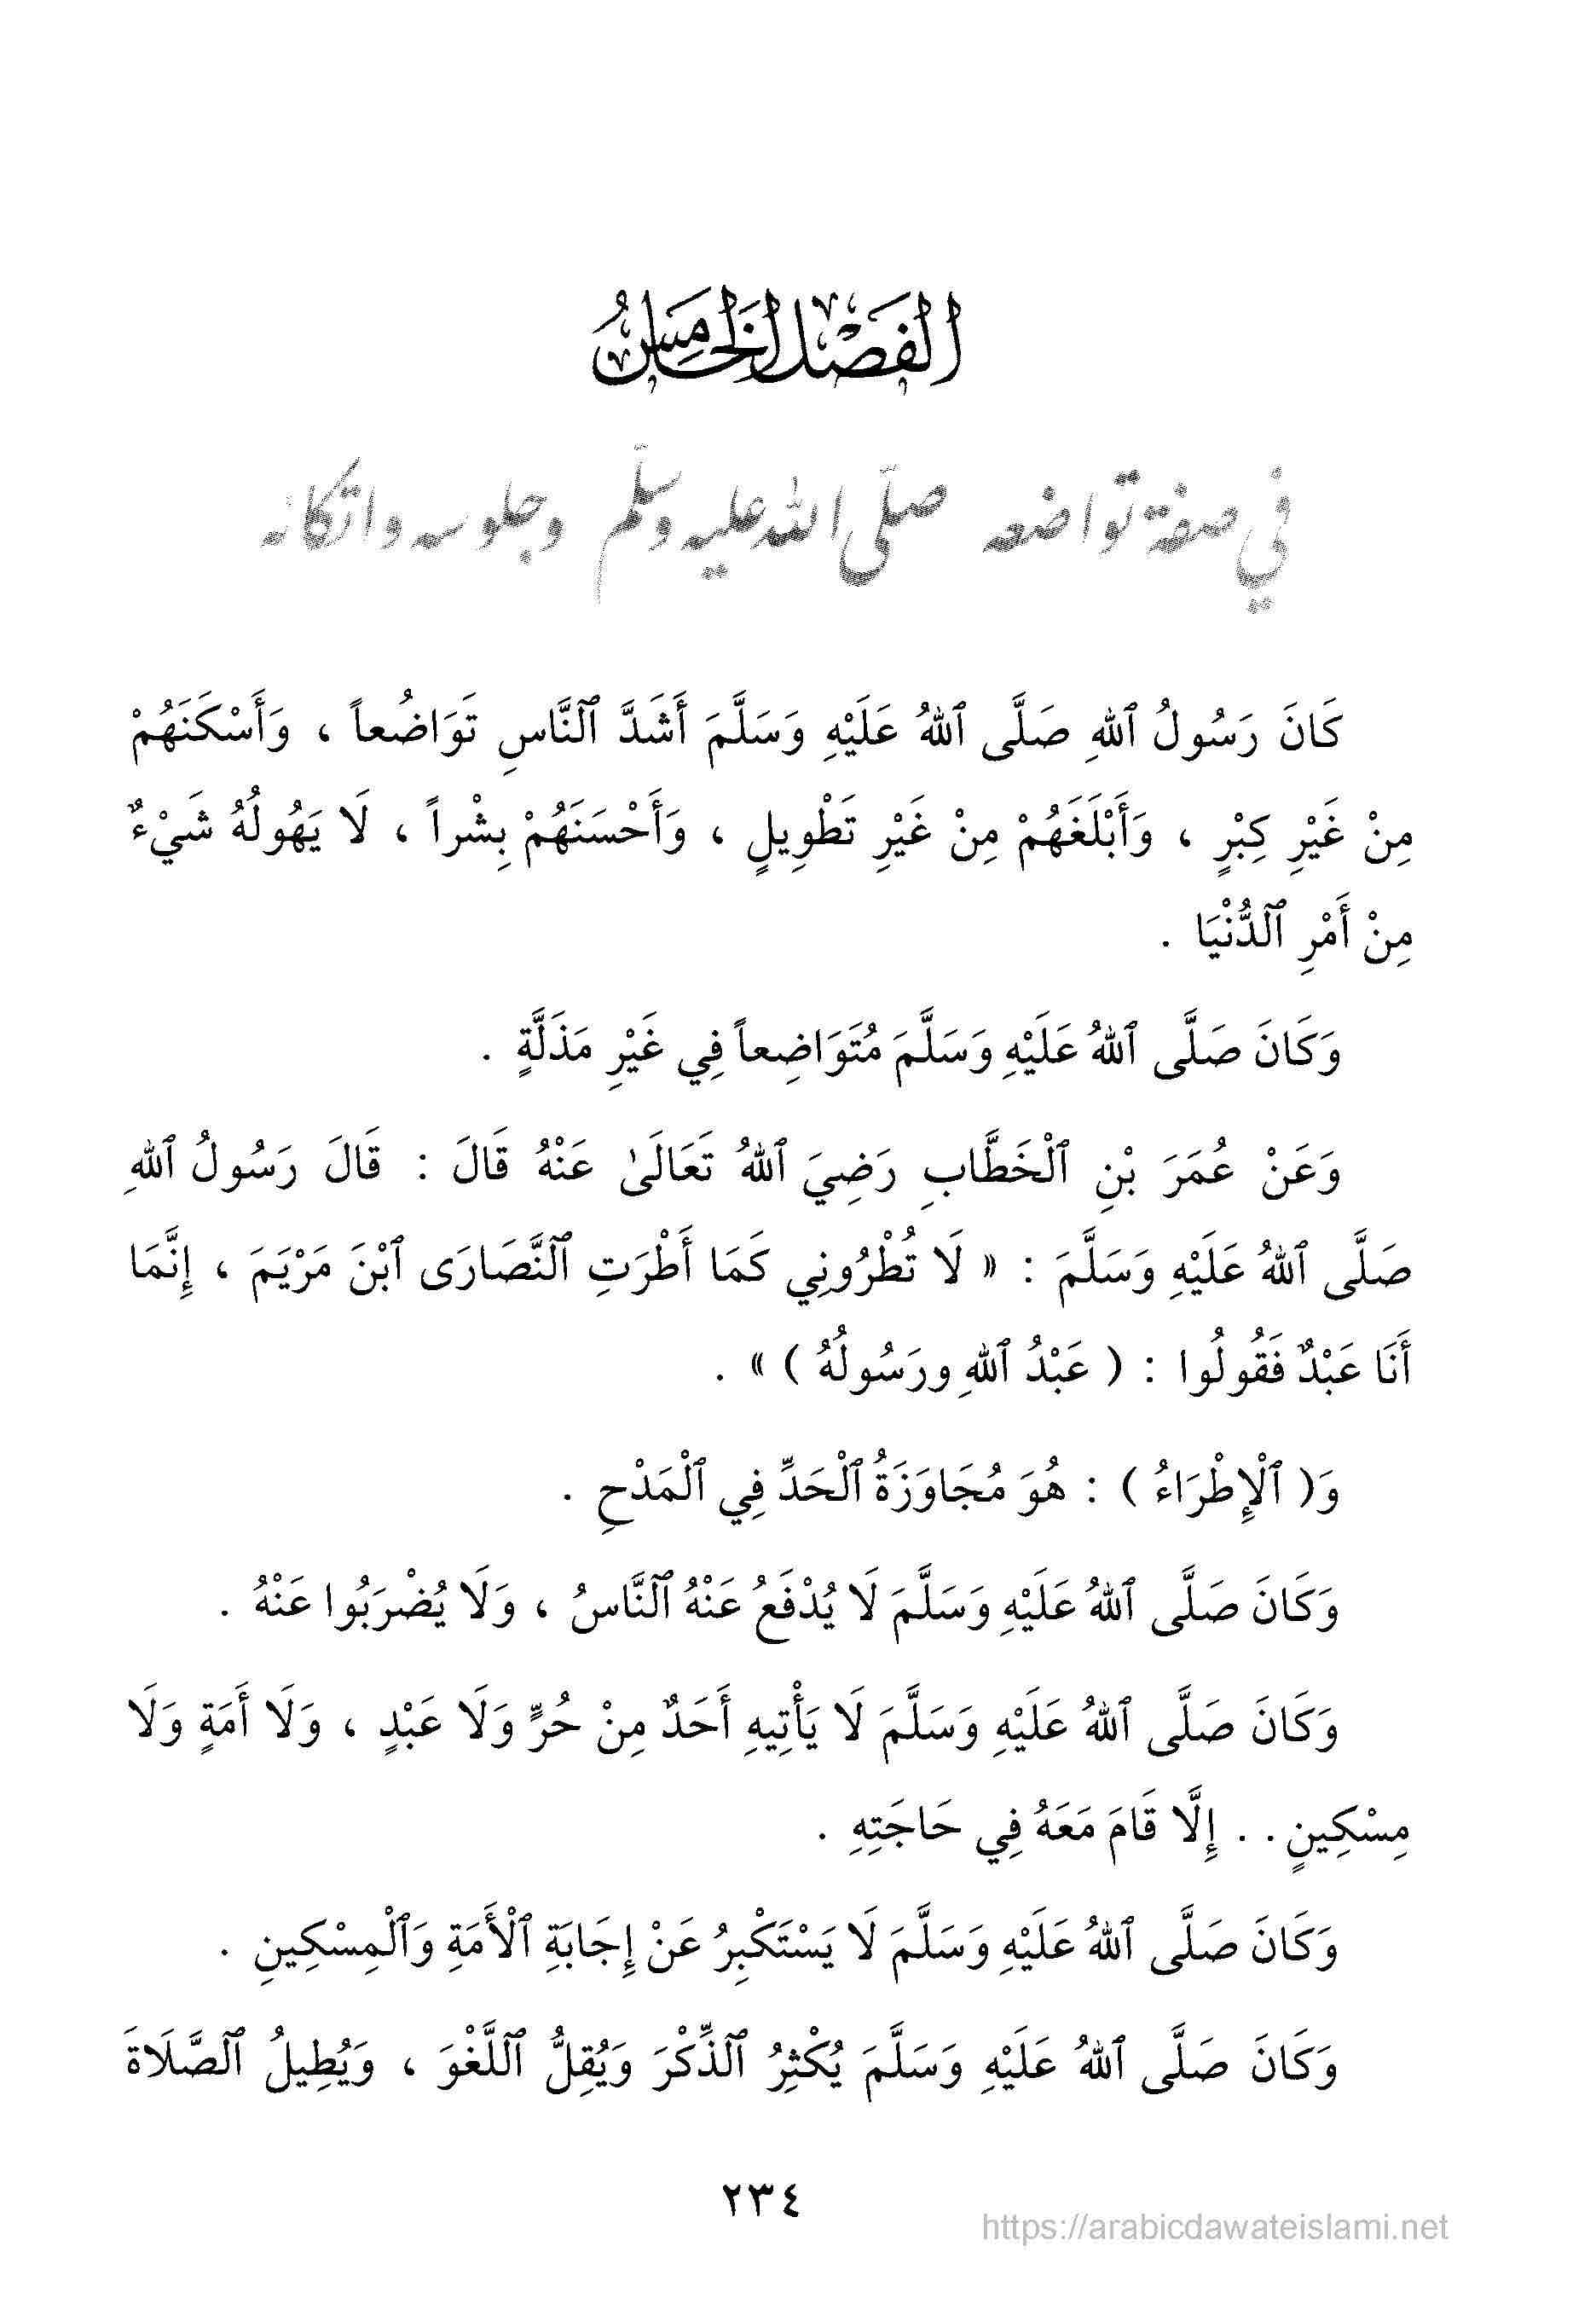 الفَصْلُ الخَامِسُ
في صفة تواضعه صلّى الله عليه وسلّم وجلوسه واتكائه
كَانَ رَسُولُ ٱللهِ صَلَّى ٱللهُ عَلَيْهِ وَسَلَّمَ أَشَدَّ ٱلنَّاسِ تَوَاضُعاً ، وَأَسْكَنَهُمْ
مِنْ غَيْرِ كِبْرٍ ، وَأَبْلَغَهُمْ مِنْ غَيْرِ تَطْوِيلٍ ، وَأَحْسَنَهُمْ بِشْراً ، لَا يَهُولُهُ شَيْءٌ
مِنْ أَمْرِ ٱلدُّنْيَا .
وَكَانَ صَلَّى ٱللهُ عَلَيْهِ وَسَلَّمَ مُتَوَاضِعاً فِي غَيْرِ مَذَلَّةٍ .
وَعَنْ عُمَرَ بْنِ ٱلْخَطَّابِ رَضِيَ ٱللهُ تَعَالَىٰ عَنْهُ قَالَ : قَالَ رَسُولُ ٱللهِ
صَلَّى ٱللهُ عَلَيْهِ وَسَلَّمَ : « لَا تُطْرُونِي كَمَا أَطْرَتِ ٱلنَّصَارَى ٱبْنَ مَرْيَمَ ، إِنَّمَا
أَنَا عَبْدٌ فَقُولُوا : ( عَبْدُ ٱللهِ ورَسُولُهُ ) » .
وَ( ٱلْإِطْرَاءُ ) : هُوَ مُجَاوَزَةُ ٱلْحَدِّ فِي ٱلْمَدْحِ .
وَكَانَ صَلَّى ٱللهُ عَلَيْهِ وَسَلَّمَ لَا يُدْفَعُ عَنْهُ ٱلنَّاسُ ، وَلَا يُضْرَبُوا عَنْهُ .
وَكَانَ صَلَّى ٱللهُ عَلَيْهِ وَسَلَّمَ لَا يَأْتِيهِ أَحَدٌ مِنْ حُرٍّ وَلَا عَبْدٍ ، وَلَا أَمَةٍ وَلَا
مِسْكِينٍ . . إِلَّا قَامَ مَعَهُ فِي حَاجَتِهِ .
وَكَانَ صَلَّى ٱللهُ عَلَيْهِ وَسَلَّمَ لَا يَسْتَكْبِرُ عَنْ إِجَابَةِ ٱلْأَمَةِ وَٱلْمِسْكِينِ .
وَكَانَ صَلَّى ٱللهُ عَلَيْهِ وَسَلَّمَ يُكْثِرُ ٱلذِّكْرَ وَيُقِلُّ ٱللَّغْوَ ، وَيُطِيلُ ٱلصَّلَاةَ
٢٣٤
https://arabicdawateislami.net